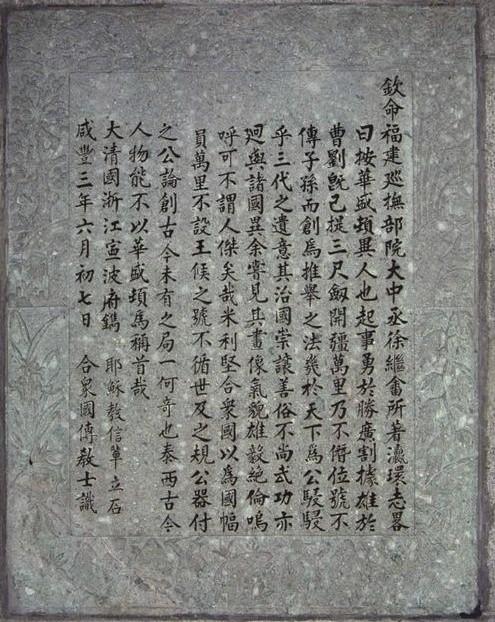 欽命福建廵撫部院大中丞徐繼畬所著瀛環志畧
曰按華盛頓異人也起事勇於勝廣割據雄於
曹劉旣已提三尺劒開疆萬里乃不僭位號不
傳子孫而創爲推舉之法幾於天下爲公駸駸
乎三代之遺意其治國崇讓善俗不尚武功亦
廻與諸國異余嘗見其畫像氣貌雄毅絕倫嗚
呼可不謂人傑矣哉米利堅合衆國以爲國幅
員萬里不設王侯之號不循世及之規公器付
之公論創古今未有之局一何奇也泰西古今
人物能不以華盛頓爲稱首哉
大清國浙江寧波府鐫 耶穌教信輩立石
咸豐三年六月初七日 合衆國傳教士識